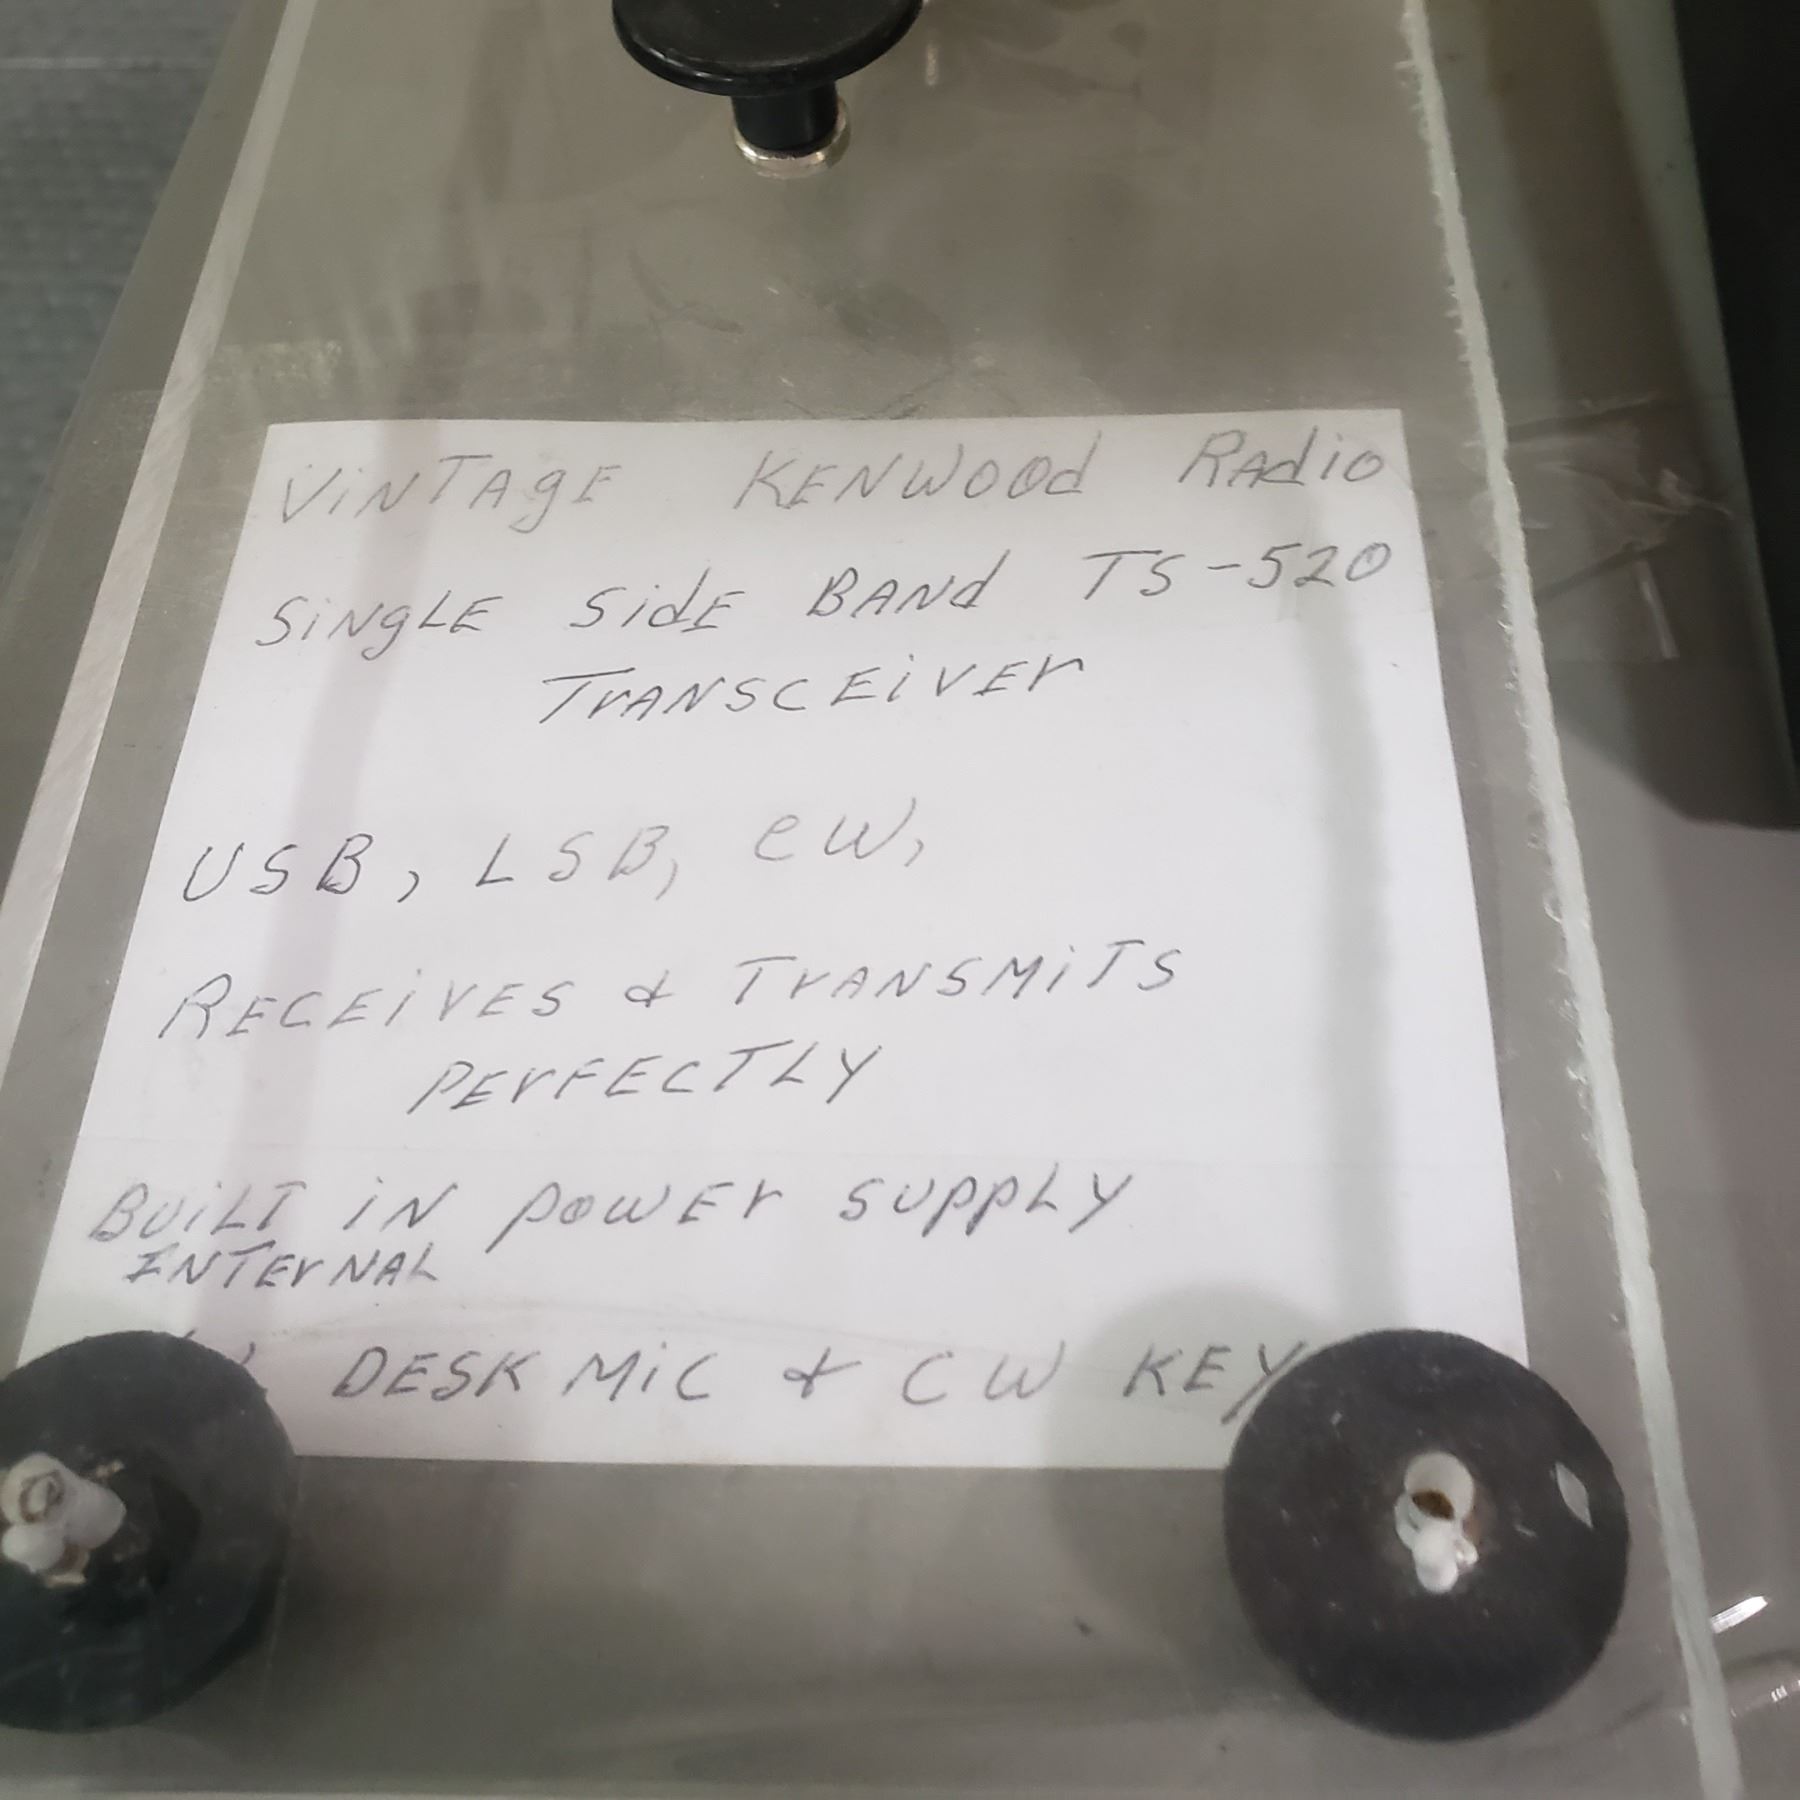 VINTAGE KENWOOD RADIO
SINGLE SIDE BAND TS-520
TRANSCEIVER
USB, LSB, CW,
RECEIVES & TRANSMITS
PERFECTLY
BUILT IN POWER SUPPLY
INTERNAL
DESK MIC & CW KEY